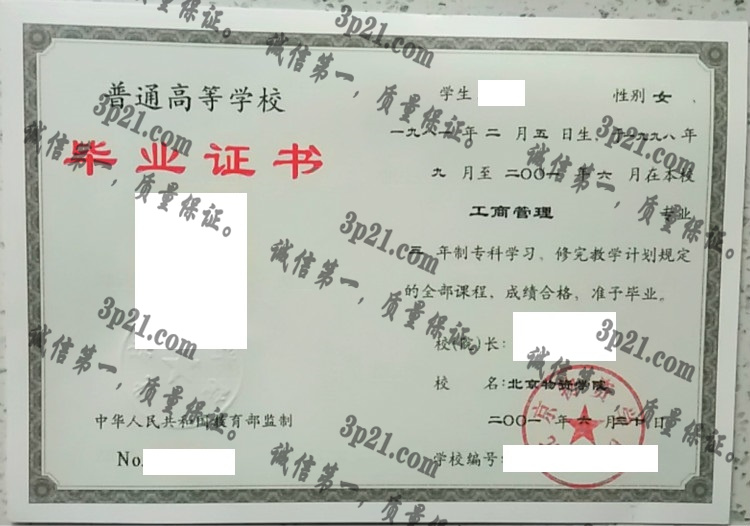 普通高等学校
毕业证书
中华人民共和国教育部监制
No.
学生 性别 女 、
一九八一年 二 月 五 日生、于一九九八年
九 月至 二〇〇一 年 六 月在本校
工商管理 专业
三 年制专科学习，修完教学计划规定
的全部课程，成绩合格，准予毕业。
校(院)长：
校 名：北京物资学院
二〇〇一 年 六 月二十日
学校编号：
3p21.com
诚信第一，质量保证。
3p21.com
诚信第一，质量保证。
3p21.com
诚信第一，质量保证。
3p21.com
诚信第一，质量保证。
3p21.com
诚信第一，质量保证。
3p21.com
诚信第一，质量保证。
3p21.com
诚信第一，质量保证。
质量保证。